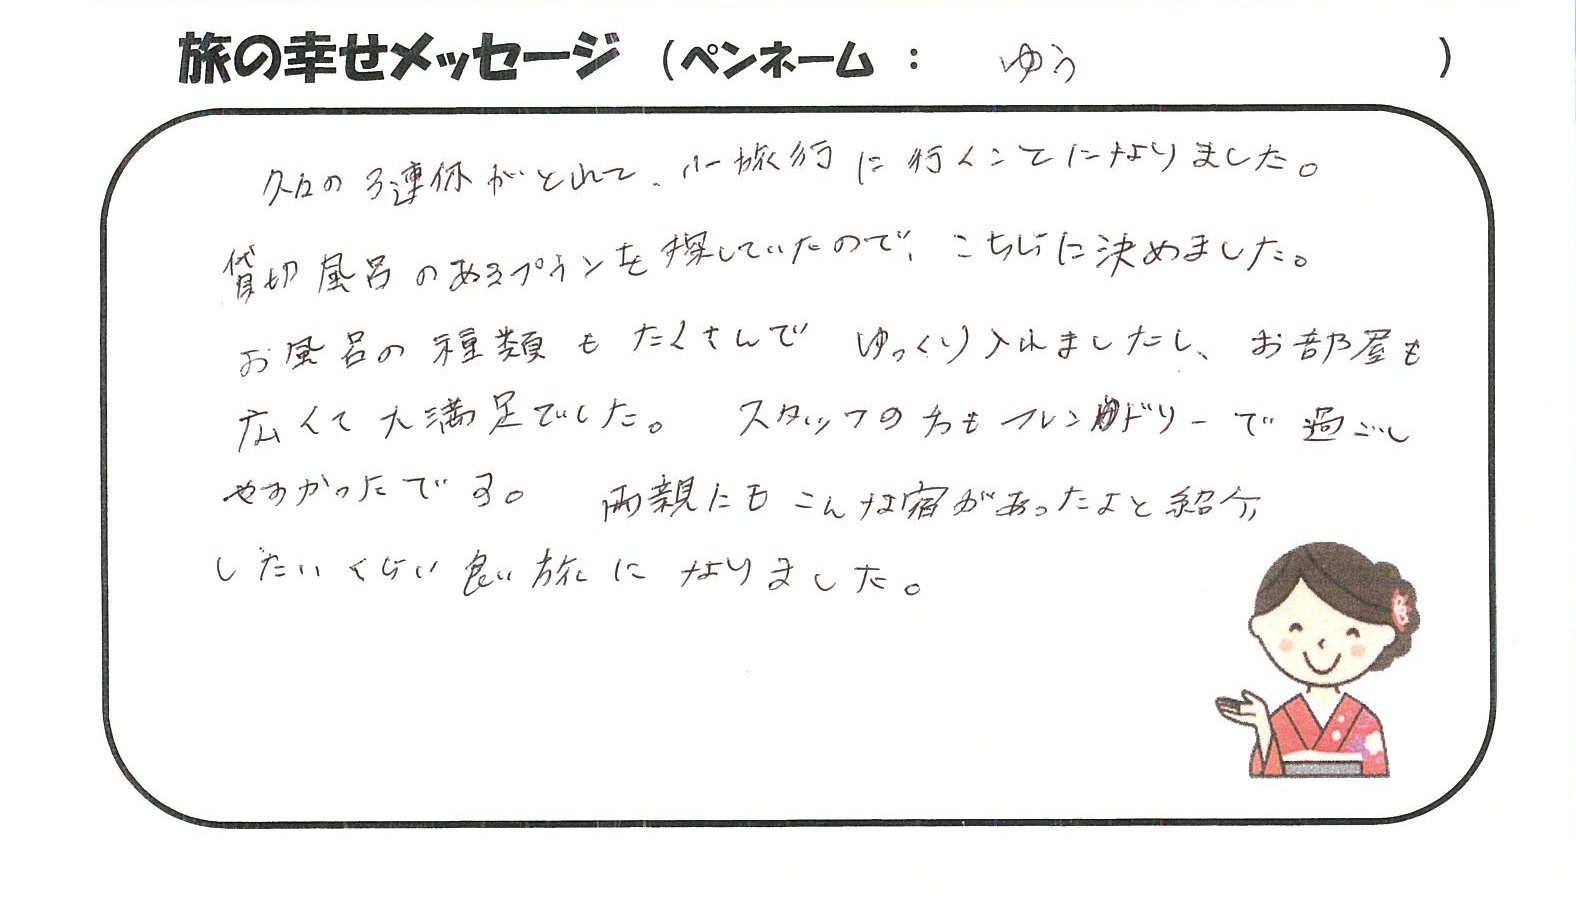 旅の幸せメッセージ (ペンネーム : ゆう )
久々の3連休がとれて、小旅行に行くことになりました。
貸切風呂のあるプランを探していたので、こちらに決めました。
お風呂の種類もたくさんでゆっくり入れましたし、お部屋も
広くて大満足でした。スタッフの方もフレンドリーで過ごし
やすかったです。両親にもこんな宿があったよと紹介
したいくらい良い旅になりました。